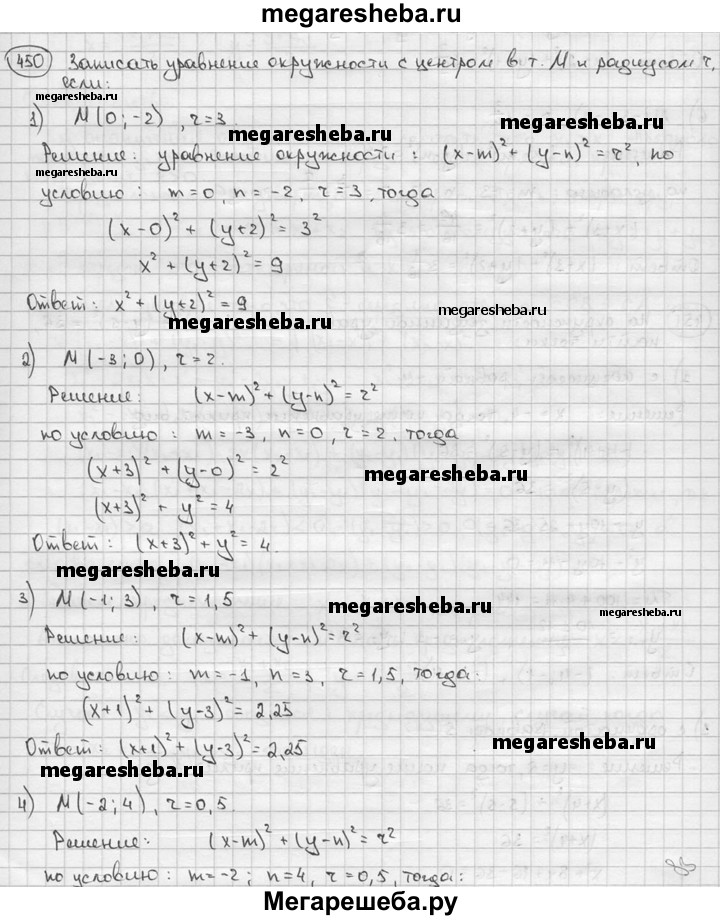 megaresheba.ru
450 Записать уравнение окружности с центром в т. M и радиусом r,
если:
megaresheba.ru
1) M(0; -2), r=3.
megaresheba.ru
Решение: уравнение окружности: (x-m)²+(y-n)²=r², по
megaresheba.ru
условию: m=0, n=-2, r=3, тогда
(x-0)²+(y+2)²=3²
x²+(y+2)²=9
Ответ: x²+(y+2)²=9
megaresheba.ru
megaresheba.ru
2) M(-3; 0), r=2.
Решение: (x-m)²+(y-n)²=r²
по условию: m=-3, n=0, r=2, тогда
(x+3)²+(y-0)²=2²
megaresheba.ru
(x+3)²+y²=4
Ответ: (x+3)²+y²=4.
megaresheba.ru
3) M(-1; 3), r=1,5
megaresheba.ru
megaresheba.ru
Решение: (x-m)²+(y-n)²=r²
по условию: m=-1, n=3, r=1,5, тогда:
(x+1)²+(y-3)²=2,25
Ответ: (x+1)²+(y-3)²=2,25
megaresheba.ru
megaresheba.ru
4) M(-2; 4), r=0,5.
Решение: (x-m)²+(y-n)²=r²
по условию: m=-2; n=4, r=0,5, тогда:
Мегарешеба.ру